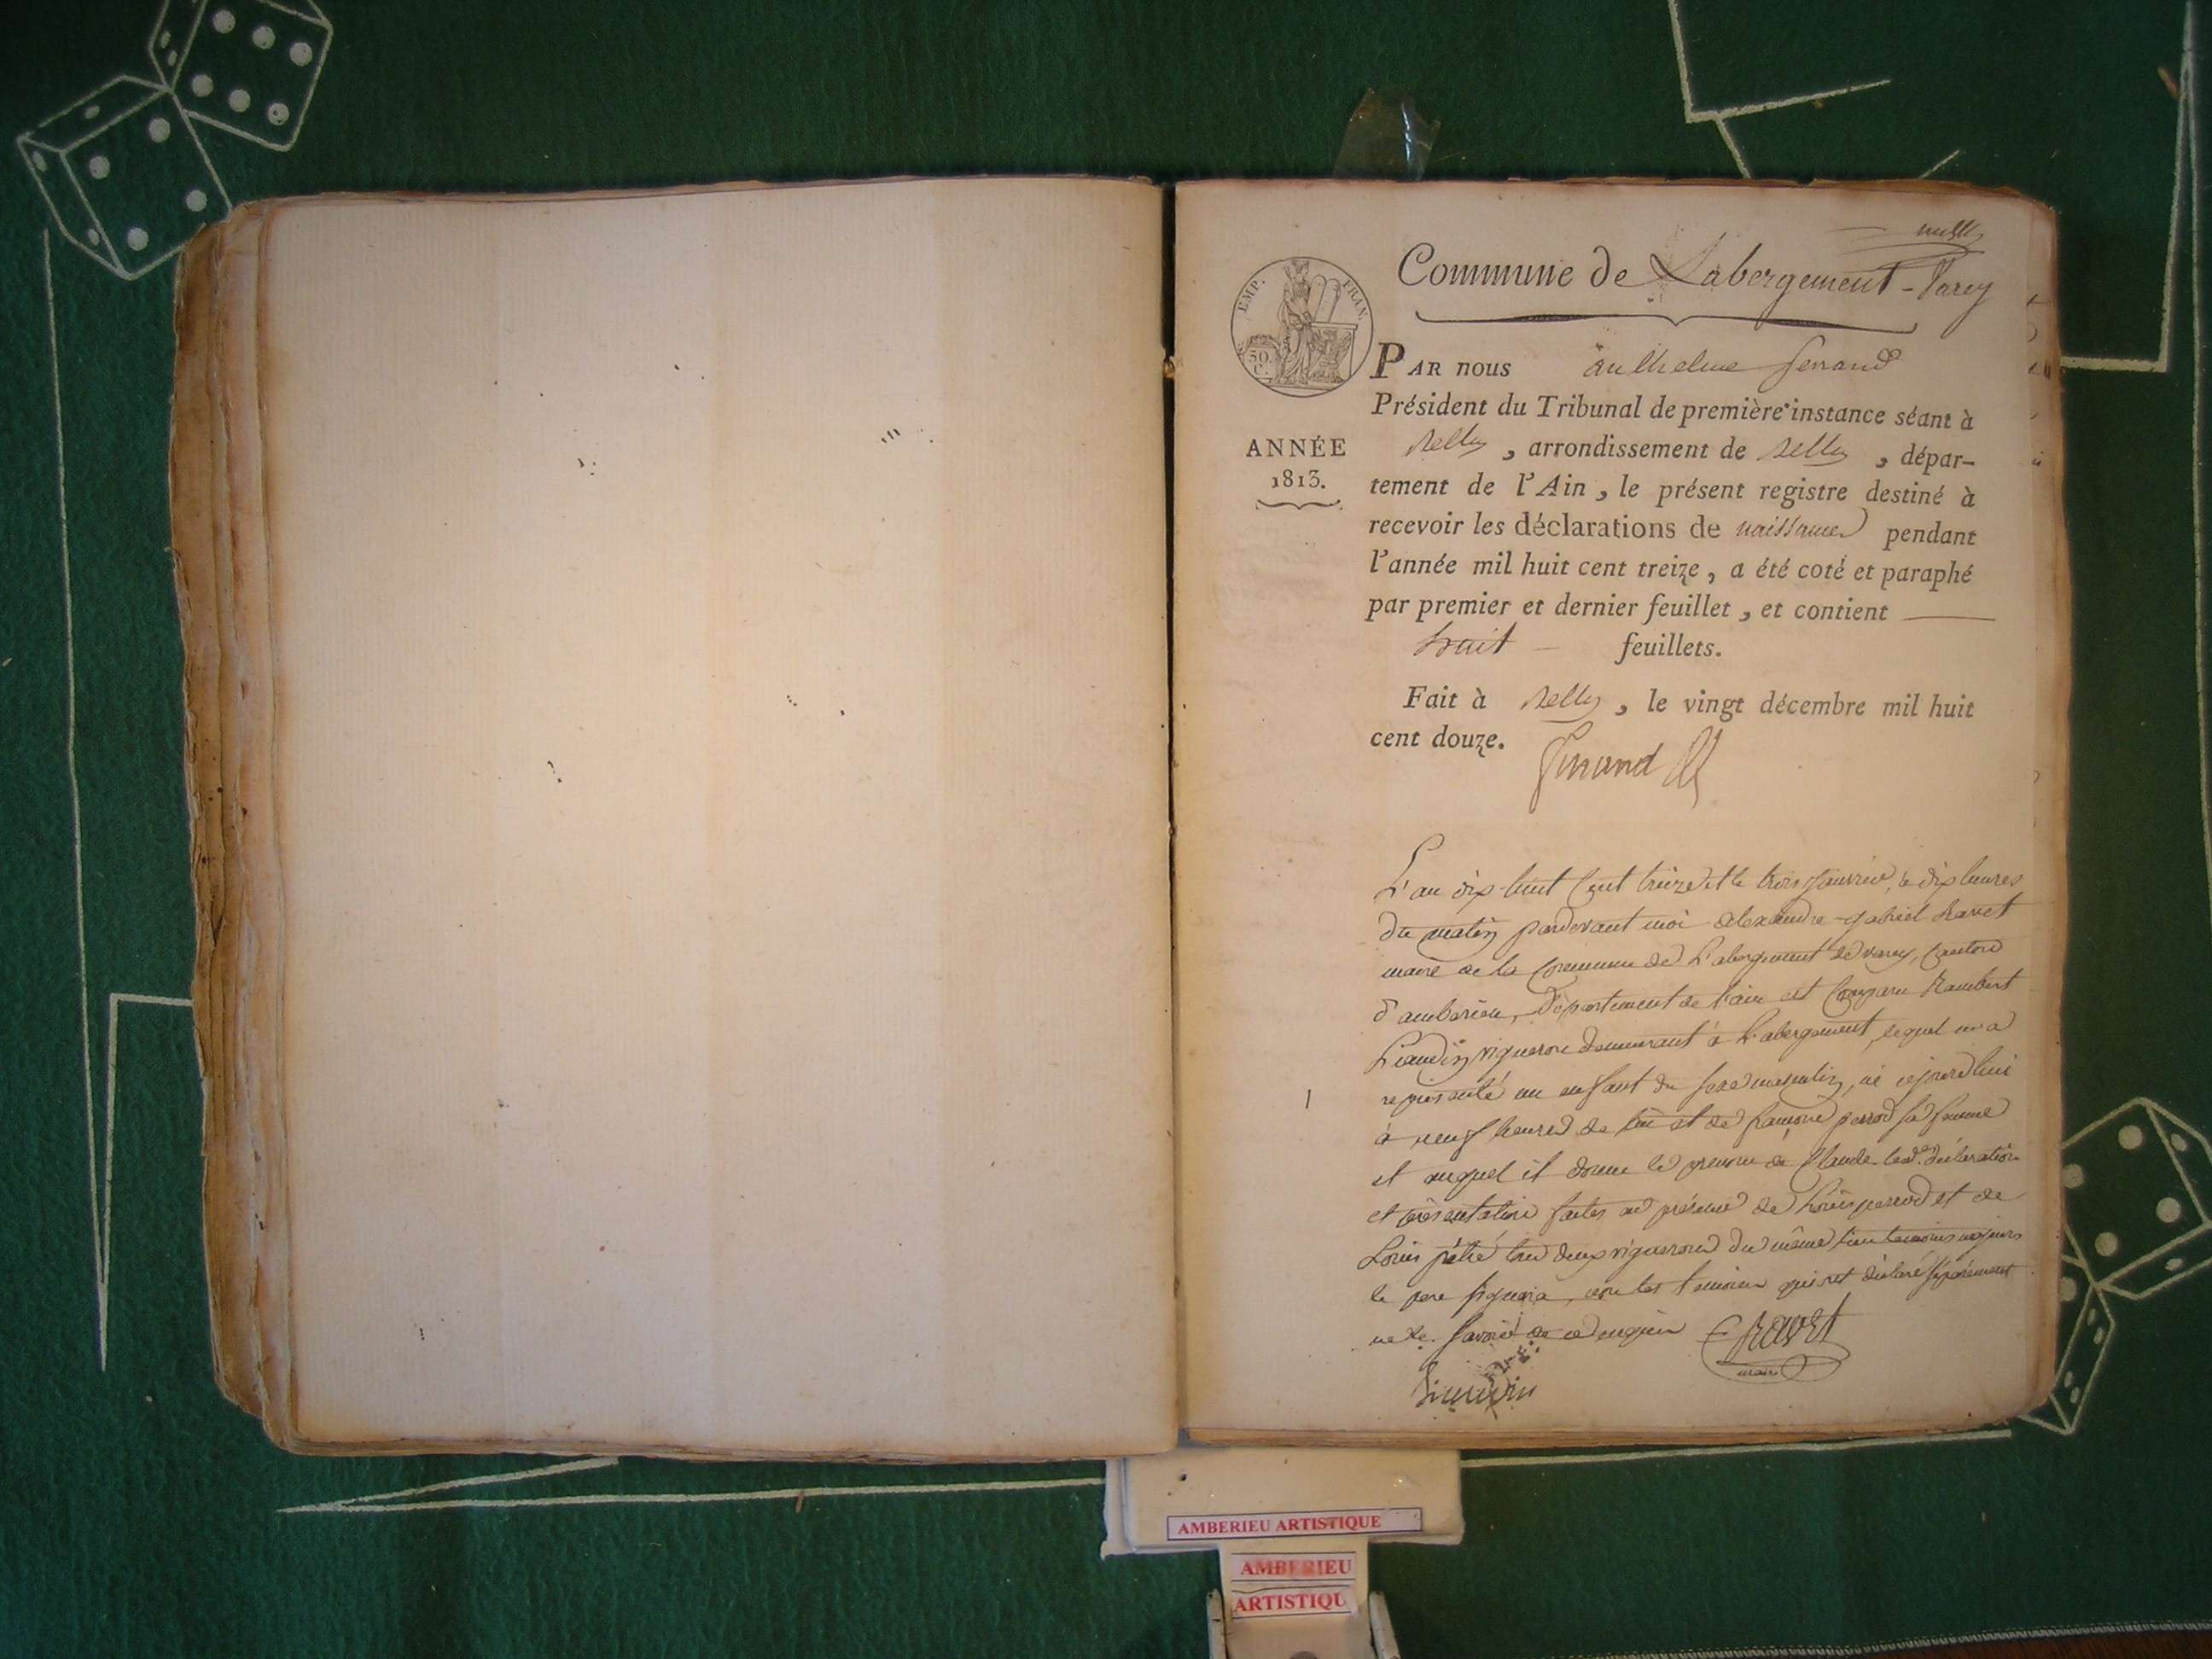 Commune de Labergement-Varey
EMP. FRAN.
50.
C.
PAR nous anthelme ferrand
Président du Tribunal de première instance séant à
ANNÉE
1813.
Belley, arrondissement de Belley, dépar-
tement de l'Ain, le présent registre destiné à
recevoir les déclarations de naissances pendant
l'année mil huit cent treize, a été coté et paraphé
par premier et dernier feuillet, et contient
huit feuillets.
Fait à Belley, le vingt décembre mil huit
cent douze.
ferrand
L'an dix-huit cent treize et le trois Janvier, à dix heures
du matin pardevant moi alexandre-gabriel
maire de la Commune de L'abergement de varey, Canton
d'ambérieu, Département de l'ain est Comparu Rambert
vigneron demeurant à L'abergement, lequel m'a
représenté un enfant du sexe masculin, né cejourd'hui
1
à neuf heures de lui et de perrod sa femme
et auquel il donne le prénom de Claude. lesd. déclaration
et présentation faites en présence de Louis perrod et de
Louis tous deux vignerons du même lieu témoins majeurs
le père signera, non les témoins qui ont déclaré séparément
ne le savoir de ce enquis
maire
AMBERIEU ARTISTIQUE
AMBERIEU
ARTISTIQU